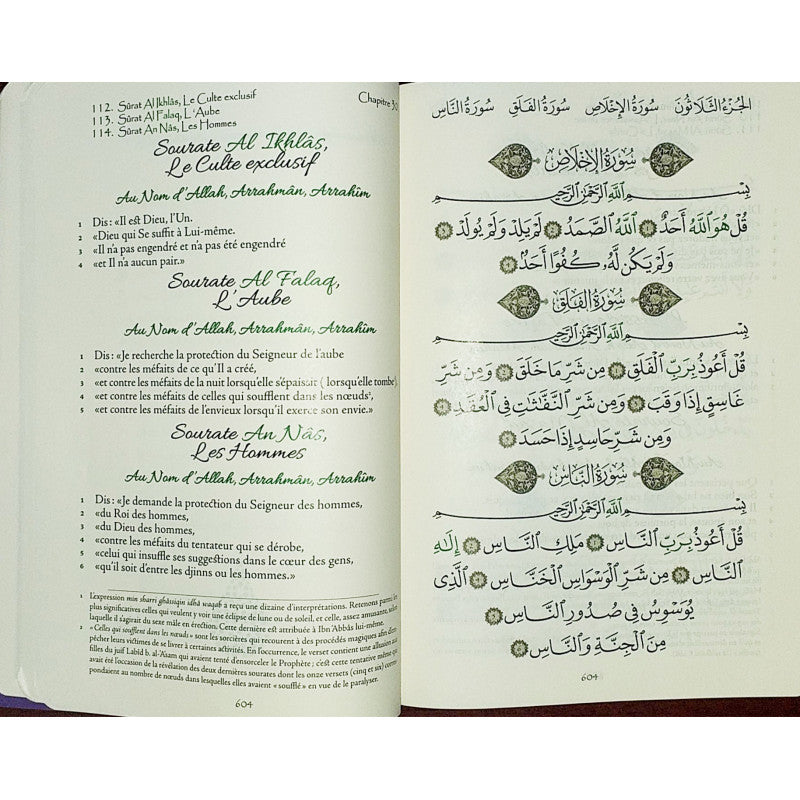 112. Sûrat Al Ikhlâs, Le Culte exclusif
113. Sûrat Al Falaq, L'Aube
114. Sûrat An Nâs, Les Hommes
Chapitre 30
Sourate Al Ikhlâs,
Le Culte exclusif
Au Nom d'Allah, Arrahmân, Arrahîm
1 Dis : «Il est Dieu, l'Un.
2 «Dieu qui Se suffit à Lui-même.
3 «Il n'a pas engendré et n'a pas été engendré
4 «et Il n'a aucun pair.»
Sourate Al Falaq,
L'Aube
Au Nom d'Allah, Arrahmân, Arrahîm
1 Dis : «Je recherche la protection du Seigneur de l'aube
2 «contre les méfaits de ce qu'Il a créé,
3 «et contre les méfaits de la nuit lorsqu'elle s'épaissit ( lorsqu'elle tombe),
4 «et contre les méfaits de celles qui soufflent dans les nœuds²,
5 «et contre les méfaits de l'envieux lorsqu'il exerce son envie.»
Sourate An Nâs,
Les Hommes
Au Nom d'Allah, Arrahmân, Arrahîm
1 Dis : «Je demande la protection du Seigneur des hommes,
2 «du Roi des hommes,
3 «du Dieu des hommes,
4 «contre les méfaits du tentateur qui se dérobe,
5 «celui qui insuffle ses suggestions dans le cœur des gens,
6 «qu'il soit d'entre les djinns ou les hommes.»
1 L'expression min sharri ghâssiqin idhâ waqab a reçu une dizaine d'interprétations. Retenons parmi les
plus significatives celles qui veulent y voir une éclipse de lune ou de soleil, et celle, assez amusante, selon
laquelle il s'agirait du sexe mâle en érection. Cette dernière est attribuée à Ibn 'Abbâs lui-même.
2 «Celles qui soufflent dans les nœuds» sont les sorcières qui recourent à des procédés magiques afin d'em-
pêcher leurs victimes de se livrer à certaines activités. En l'occurrence, le verset contient une allusion aux
filles du juif Labîd b. al-'Aṣam qui avaient tenté d'ensorceler le Prophète ; c'est cette tentative même qui
avait été l'occasion de la révélation des deux dernières sourates dont les onze versets (cinq et six) corres-
pondaient au nombre de nœuds dans lesquelles elles avaient «soufflé» en vue de le paralyser.
604
الجُزْءُ الثَّلَاثُونَ سُورَةُ الإِخْلَاصِ سُورَةُ الفَلَقِ سُورَةُ النَّاسِ
سُورَةُ الإِخْلَاصِ
بِسْمِ ٱللَّهِ ٱلرَّحْمَٰنِ ٱلرَّحِيمِ
قُلْ هُوَ ٱللَّهُ أَحَدٌ ١ ٱللَّهُ ٱلصَّمَدُ ٢ لَمْ يَلِدْ وَلَمْ يُولَدْ ٣
وَلَمْ يَكُن لَّهُۥ كُفُوًا أَحَدٌۢ ٤
سُورَةُ الفَلَقِ
بِسْمِ ٱللَّهِ ٱلرَّحْمَٰنِ ٱلرَّحِيمِ
قُلْ أَعُوذُ بِرَبِّ ٱلْفَلَقِ ١ مِن شَرِّ مَا خَلَقَ ٢ وَمِن شَرِّ
غَاسِقٍ إِذَا وَقَبَ ٣ وَمِن شَرِّ ٱلنَّفَّٰثَٰتِ فِى ٱلْعُقَدِ ٤
وَمِن شَرِّ حَاسِدٍ إِذَا حَسَدَ ٥
سُورَةُ النَّاسِ
بِسْمِ ٱللَّهِ ٱلرَّحْمَٰنِ ٱلرَّحِيمِ
قُلْ أَعُوذُ بِرَبِّ ٱلنَّاسِ ١ مَلِكِ ٱلنَّاسِ ٢ إِلَٰهِ
ٱلنَّاسِ ٣ مِن شَرِّ ٱلْوَسْوَاسِ ٱلْخَنَّاسِ ٤ ٱلَّذِى
يُوَسْوِسُ فِى صُدُورِ ٱلنَّاسِ ٥
مِنَ ٱلْجِنَّةِ وَٱلنَّاسِ ٦
604